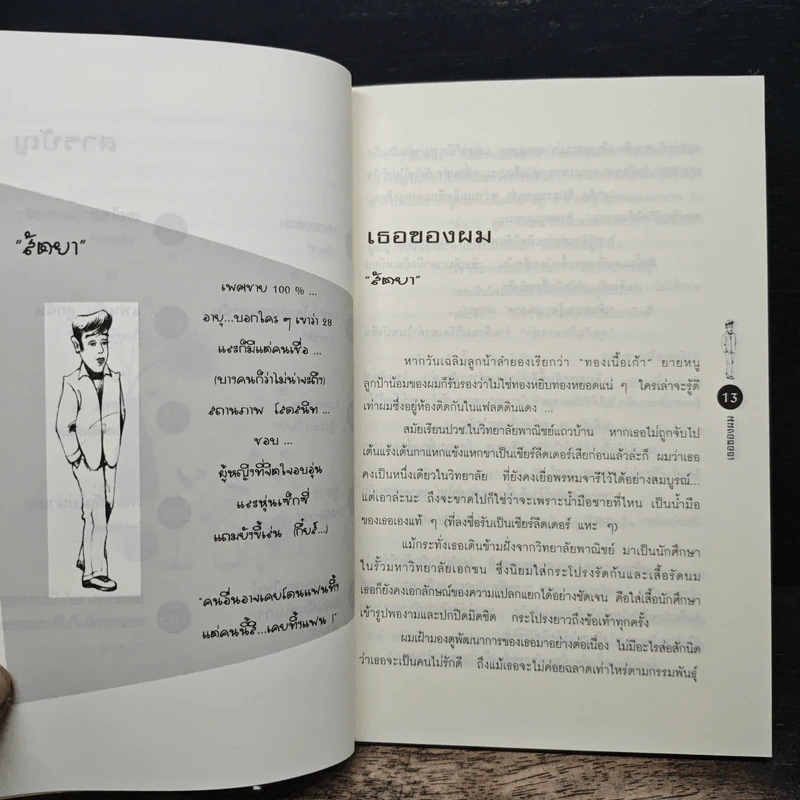 สารบัญ
"สัตยา"
เพศชาย 100 % ...
อายุ...บอกใคร ๆ เขาว่า 28
และก็มีแต่คนเชื่อ ...
(บางคนก็ว่าไม่น่าจะถึง)
สถานภาพ โสดสนิท ...
ชอบ ...
ผู้หญิงที่จิตใจอบอุ่น
และหุ่นเซ็กซี่
แถมยังขี้เร่น (กี๋ยส์...)
"คนอื่นอาจเคยโดนแฟนทิ้ง
แต่คนนี้สิ...เคยทิ้งแฟน !"
เธอของผม
"สัตยา"
หากวันเฉลิมลูกน้าลำยองเรียกว่า "ทองเนื้อเก้า" ยายหนู
ลูกป้าน้อมของผมก็รับรองว่าไม่ใช่ทองหยิบทองหยอดแน่ ๆ ใครเล่าจะรู้ดี
เท่าผมซึ่งอยู่ห้องติดกันในแฟลตดินแดง ...
สมัยเรียนปวช.ในวิทยาลัยพาณิชย์แถวบ้าน หากเธอไม่ถูกจับไป
เต้นแร้งเต้นกาแหกแข้งแหกขาเป็นเชียร์ลีดเดอร์เสียก่อนแล้วล่ะก็ ผมว่าเธอ
คงเป็นหนึ่งเดียวในวิทยาลัย ที่ยังคงเยื่อพรหมจารีไว้ได้อย่างสมบูรณ์...
แต่เอาล่ะนะ ถึงจะขาดไปก็ใช่ว่าจะเพราะน้ำมือชายที่ไหน เป็นน้ำมือ
ของเธอเองแท้ ๆ (ที่ลงชื่อรับเป็นเชียร์ลีดเดอร์ แหะ ๆ)
แม้กระทั่งเธอเดินข้ามฝั่งจากวิทยาลัยพาณิชย์ มาเป็นนักศึกษา
ในรั้วมหาวิทยาลัยเอกชน ซึ่งนิยมใส่กระโปรงรัดก้นและเสื้อรัดนม
เธอก็ยังคงเอกลักษณ์ของความแปลกแยกได้อย่างชัดเจน คือใส่เสื้อนักศึกษา
เข้ารูปพองามและปกปิดมิดชิด กระโปรงยาวถึงข้อเท้าทุกครั้ง
ผมเฝ้ามองดูพัฒนาการของเธอมาอย่างต่อเนื่อง ไม่มีอะไรส่อสักนิด
ว่าเธอจะเป็นคนไม่รักดี ถึงแม้เธอจะไม่ค่อยฉลาดเท่าไหร่ตามกรรมพันธุ์
13
เธอของผม